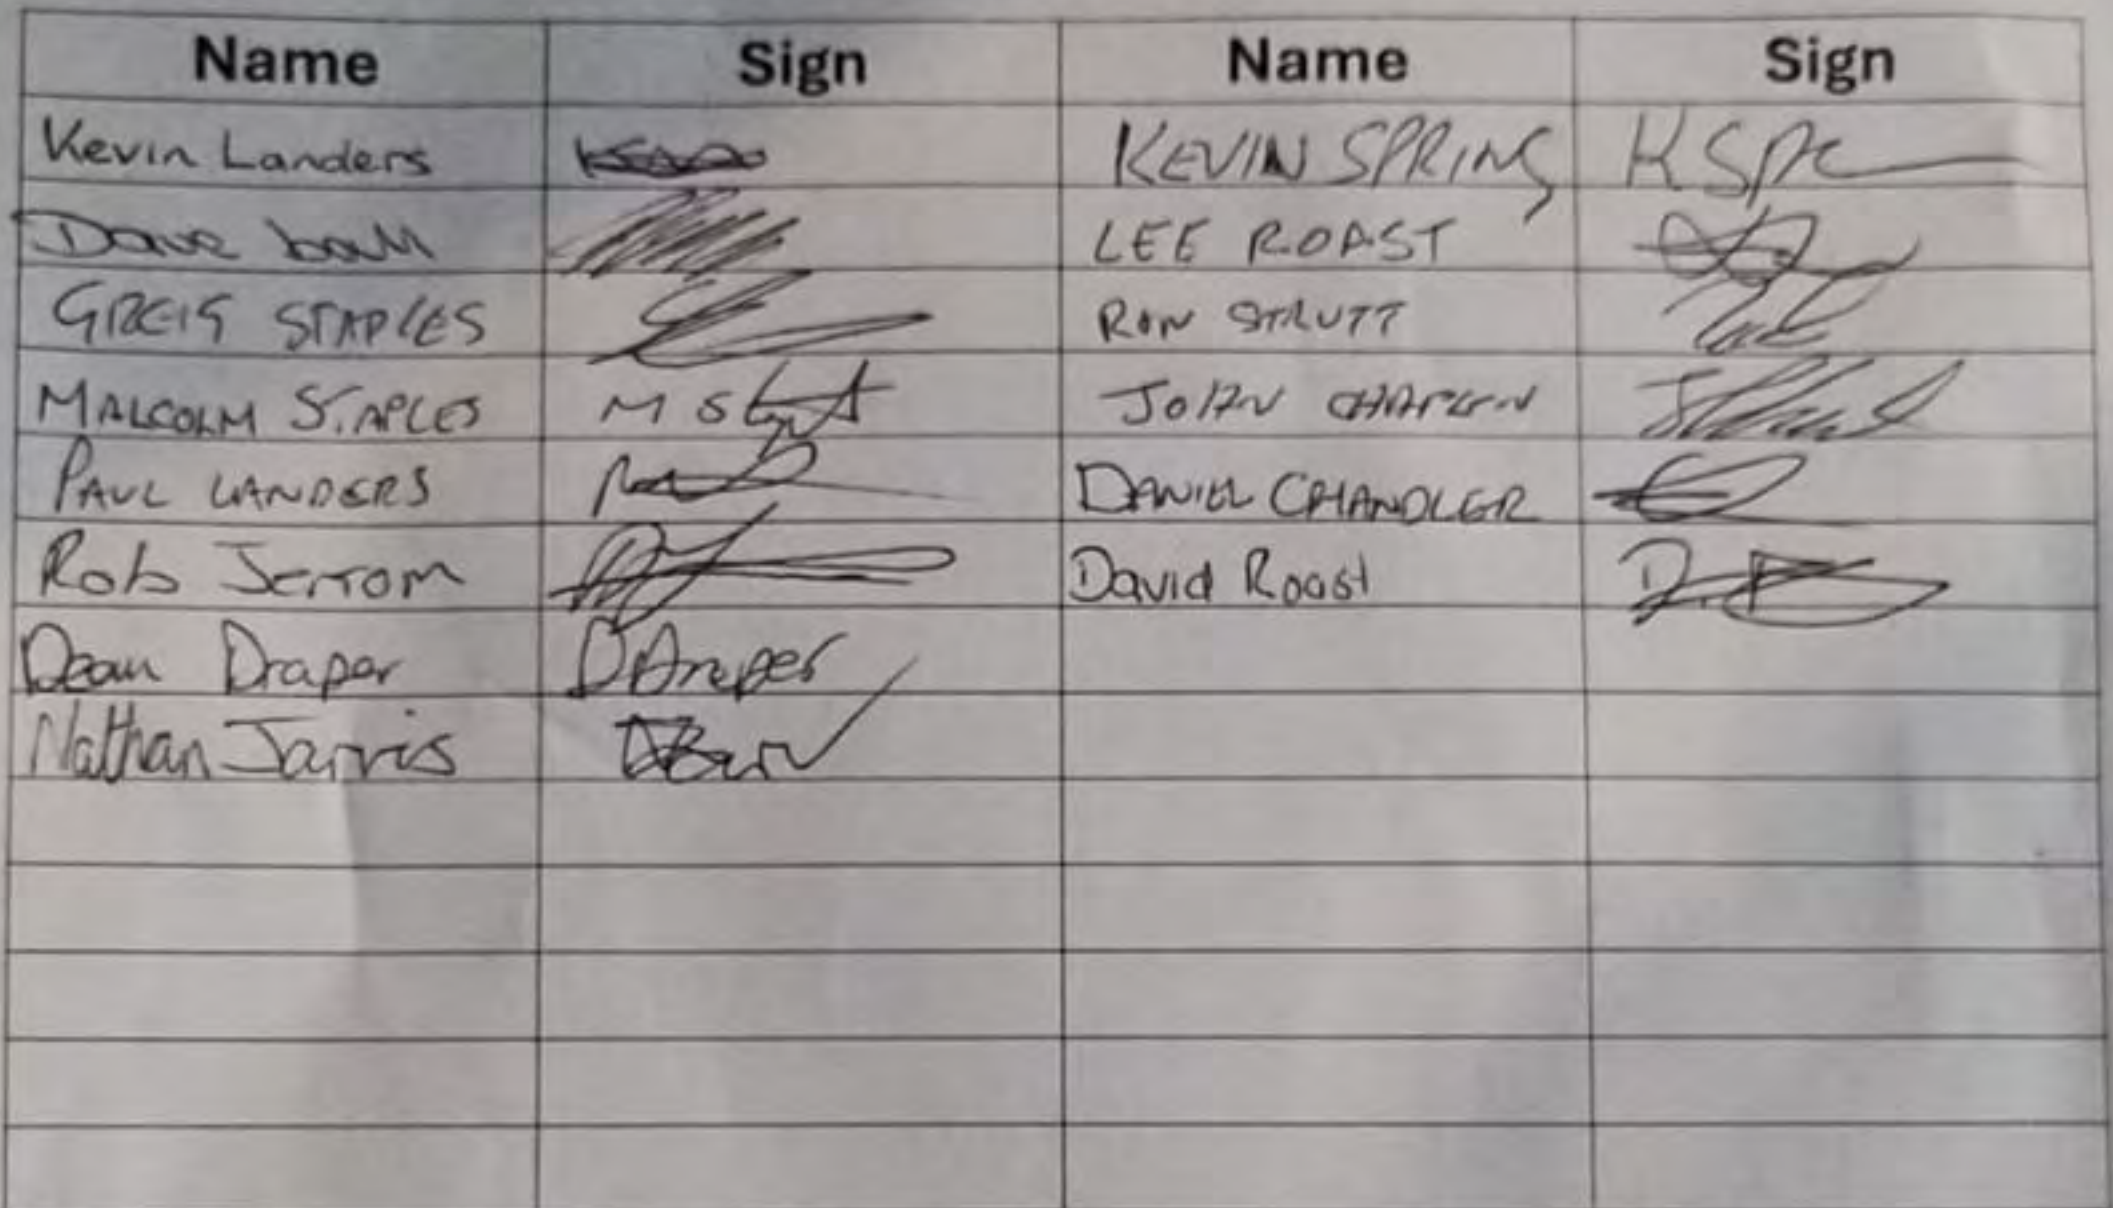 Name Sign Name Sign
Kevin Landers KEVIN SPRING KSpr
Dave ball LEE ROAST
GREIG STAPLES RON STRUTT
MALCOLM STAPLES M St JOHN CHAPLIN
PAUL LANDERS DANIEL CHANDLER
Rob Jerrom David Roast
Dean Draper DDraper
Nathan Jarvis